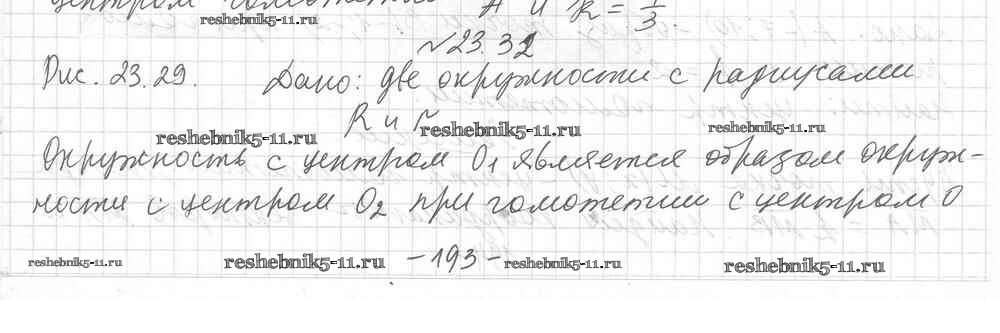 центром гомотетии A и k = 1/3.
reshebnik5-11.ru
№23.32
Рис. 23.29. Дано: две окружности с радиусами
R и r
reshebnik5-11.ru reshebnik5-11.ru reshebnik5-11.ru
Окружность с центром O₁ является образом окруж-
ности с центром O₂ при гомотетии с центром O
-193-
reshebnik5-11.ru reshebnik5-11.ru reshebnik5-11.ru reshebnik5-11.ru